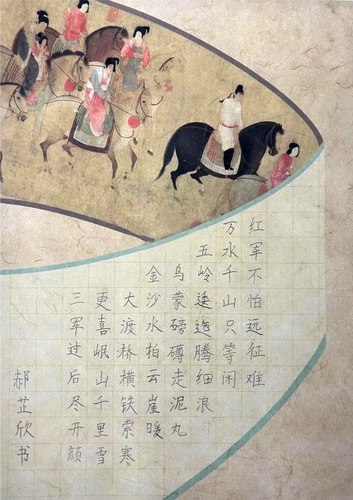 红军不怕远征难
万水千山只等闲
五岭逶迤腾细浪
乌蒙磅礴走泥丸
金沙水拍云崖暖
大渡桥横铁索寒
更喜岷山千里雪
三军过后尽开颜
郝芷欣书